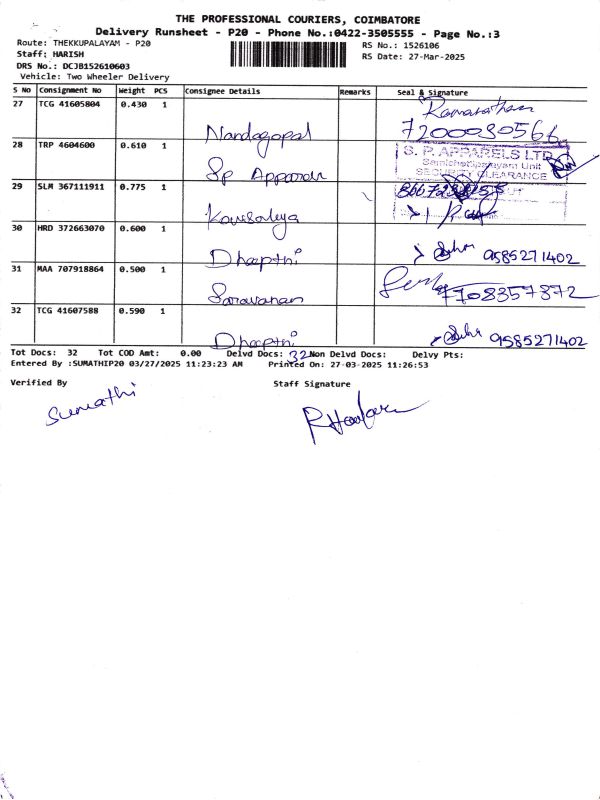 THE PROFESSIONAL COURIERS, COIMBATORE
Delivery Runsheet - P20 - Phone No.:0422-3505555 - Page No.:3
Route: THEKKUPALAYAM - P20
RS No.: 1526106
Staff: HARISH
RS Date: 27-Mar-2025
DRS No.: DCJB152610603
Vehicle: Two Wheeler Delivery
S No Consignment No Weight PCS Consignee Details Remarks Seal & Signature
27 TCG 41605804 0.430 1
Nandagopal
28 TRP 4604600 0.610 1
S. P. APPARELS LTD
SECURITY CLEARANCE
29 SLM 367111911 0.775 1
Kousalya
30 HRD 372663070 0.600 1
Dheepthi 9585271402
31 MAA 707918864 0.500 1
Saravanan 7708357372
32 TCG 41607588 0.590 1
Dheepthi 9585271402
Tot Docs: 32 Tot COD Amt: 0.00 Delvd Docs: 32 Non Delvd Docs: Delvy Pts:
Entered By :SUMATHIP20 03/27/2025 11:23:23 AM Printed On: 27-03-2025 11:26:53
Verified By Staff Signature
Sumathi